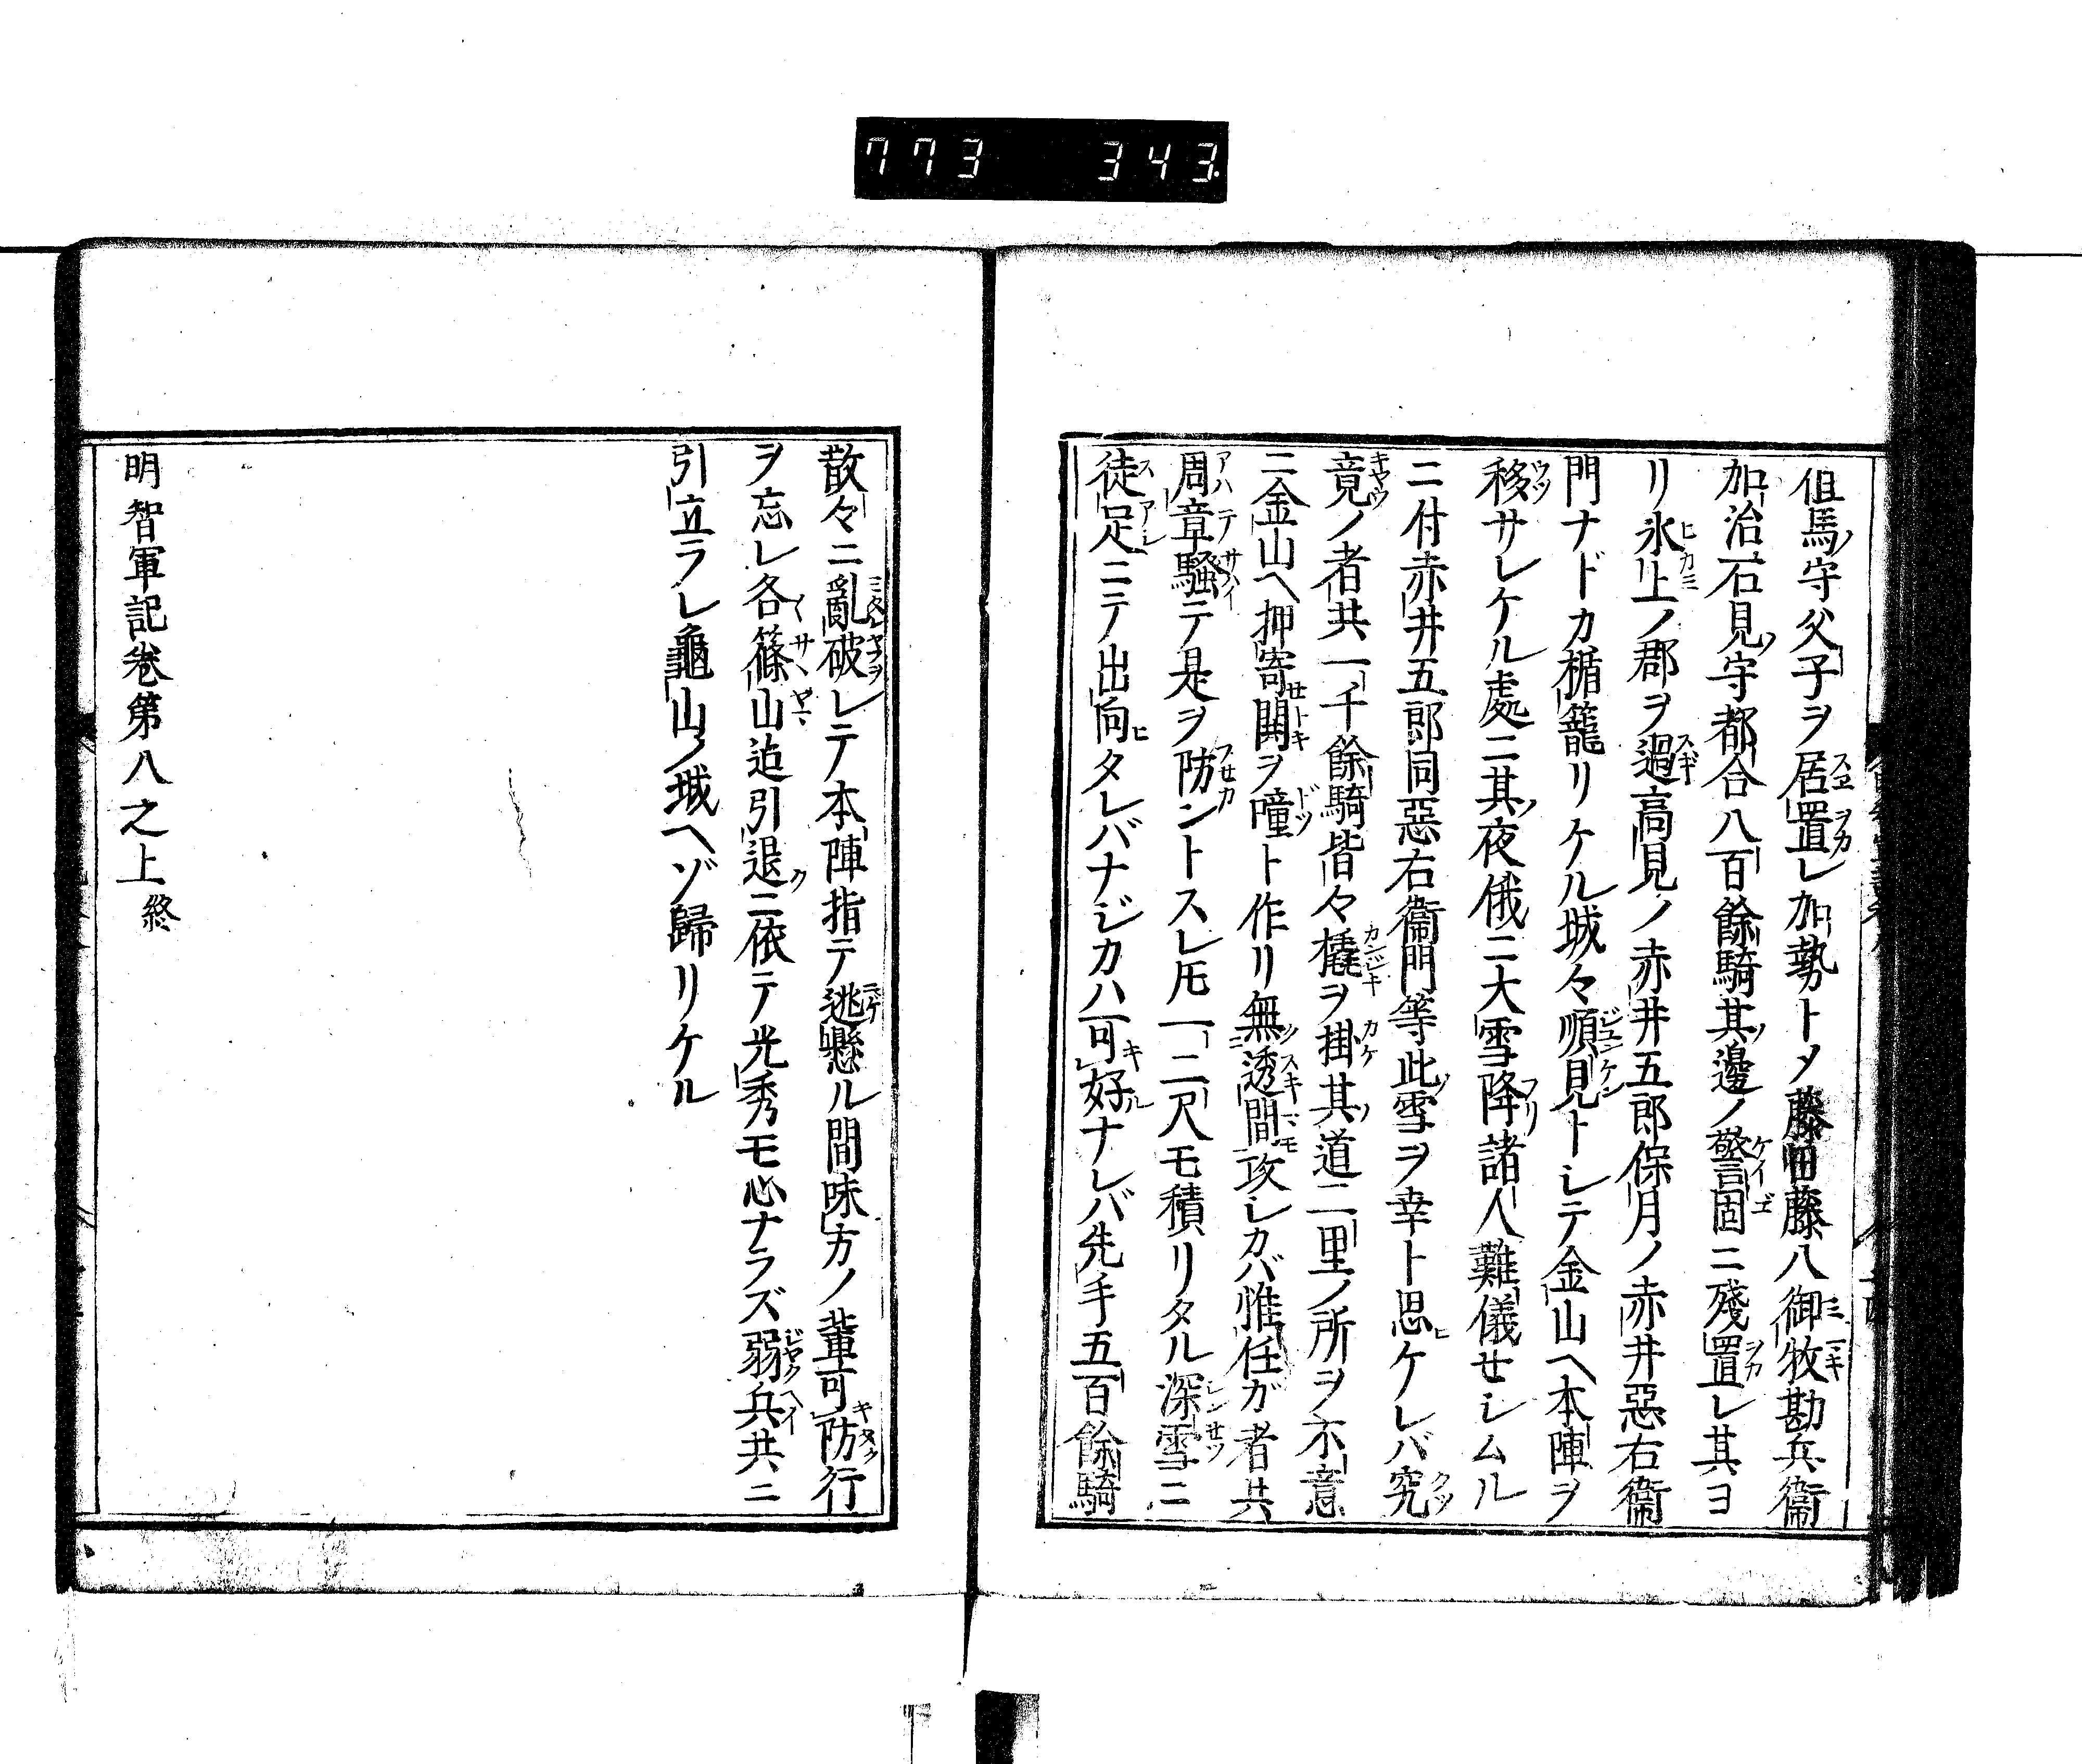 773 343
但馬ノ守父子ヲ居置レ加勢トメ藤田藤八御牧勘兵衞
加治石見ノ守都合八百餘騎其ノ邊ノ警固ニ殘置レ其ヨ
リ氷上ノ郡ヲ過高見ノ赤井五郎保月ノ赤井惡右衞
門ナドカ楯籠リケル城々順見トレテ金山ヘ本陣ヲ
移サレケル處ニ其ノ夜俄ニ大雪降諸人難儀せシムル
ニ付赤井五郎同惡右衞門等此ノ雪ヲ幸ト思ケレバ究
竟ノ者共一千餘騎皆々橇ヲ掛其ノ道二里ノ所ヲ不意
ニ金山ヘ押寄鬨ヲ瞳ト作リ無透間攻シカバ惟任ガ者共
周章騷テ是ヲ防ントスレ𪜈一二尺モ積リタル深雪ニ
徒足ニテ出向タレバナジカハ可好ナレバ先手五百餘騎
散々ニ亂破レテ本陣指テ逃懸ル間味方ノ輩可防行
ヲ忘レ各篠山迠引退ニ依テ光秀モ心ナラズ弱兵共ニ
引立ラレ龜山ノ城ヘゾ歸リケル
明智軍記卷第八之上終